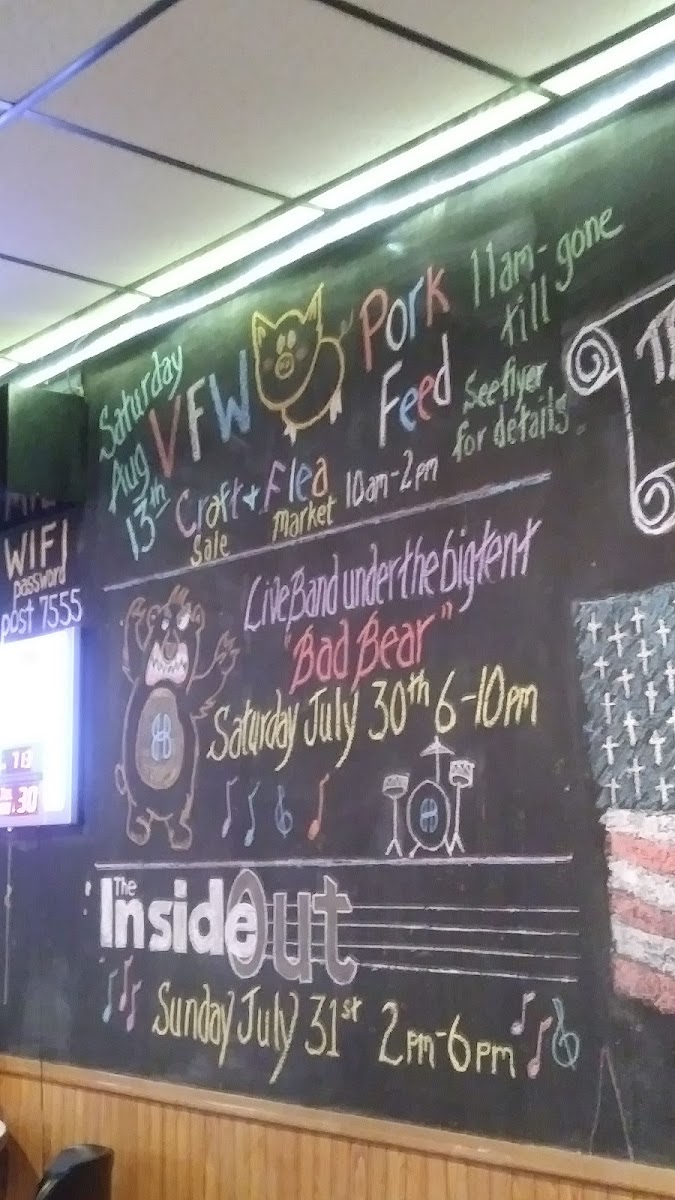 Saturday
Aug
13th
VFW
Pork
Feed
11am - gone
till
See flyer
for details.
Craft + Flea
Sale Market
10am - 2pm
WIFI
password
post 7555
Live Band under the big tent
"Bad Bear"
Saturday July 30th 6 - 10pm
The
Inside Out
Sunday July 31st 2pm - 6pm